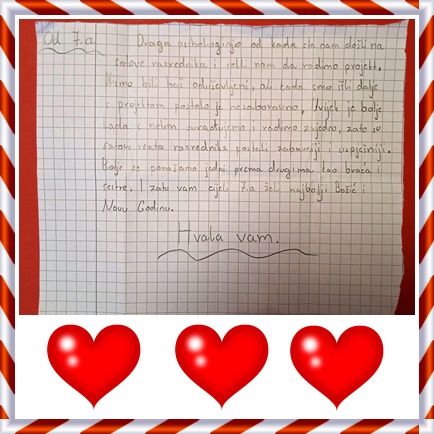 Od 7.a
Draga psihologinjo od kada ste nam došli na
satove razrednika i rekli nam da radimo projekt.
Nismo bili baš oduševljeni, ali kada smo išli dalje
projektom postalo je nezaboravno. Uvijek je bolje
kada s nekim surađujemo i radimo zajedno, zato su
satovi sata razrednika postali zabavniji i uspješniji.
Bolje se ponašamo jedni prema drugima kao braća i
sestre. I zato vam cijeli 7.a želi najbolji Božić i
Novu Godinu.
Hvala vam.